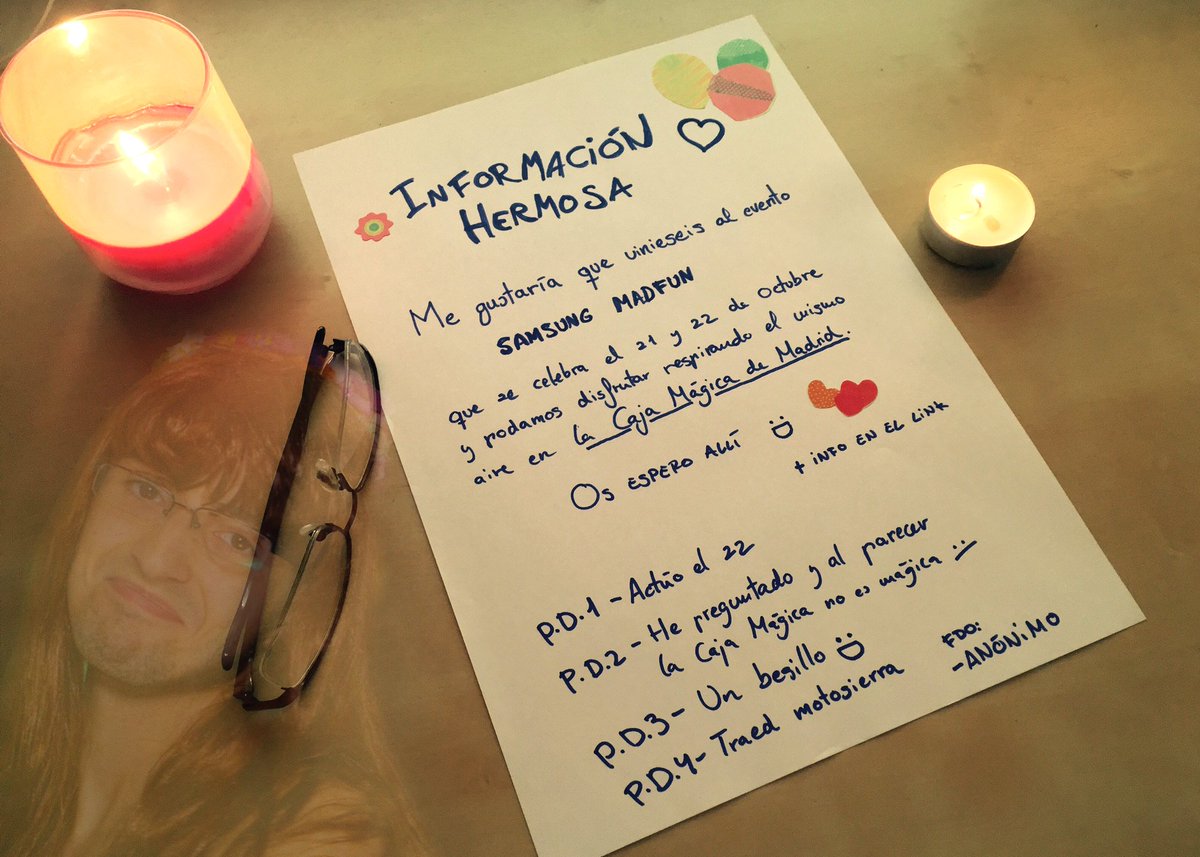 INFORMACIÓN
HERMOSA
Me gustaría que vinieseis al evento
SAMSUNG MADFUN
que se celebra el 21 y 22 de Octubre
y podamos disfrutar respirando el mismo
aire en la Caja Mágica de Madrid.
OS ESPERO ALLÍ
+ INFO EN EL LINK
P.D.1 - Actúo el 22
P.D.2 - He preguntado y al parecer
la Caja Mágica no es mágica
P.D.3 - Un besillo
P.D.4 - Traed motosierra
FDO:
- ANÓNIMO